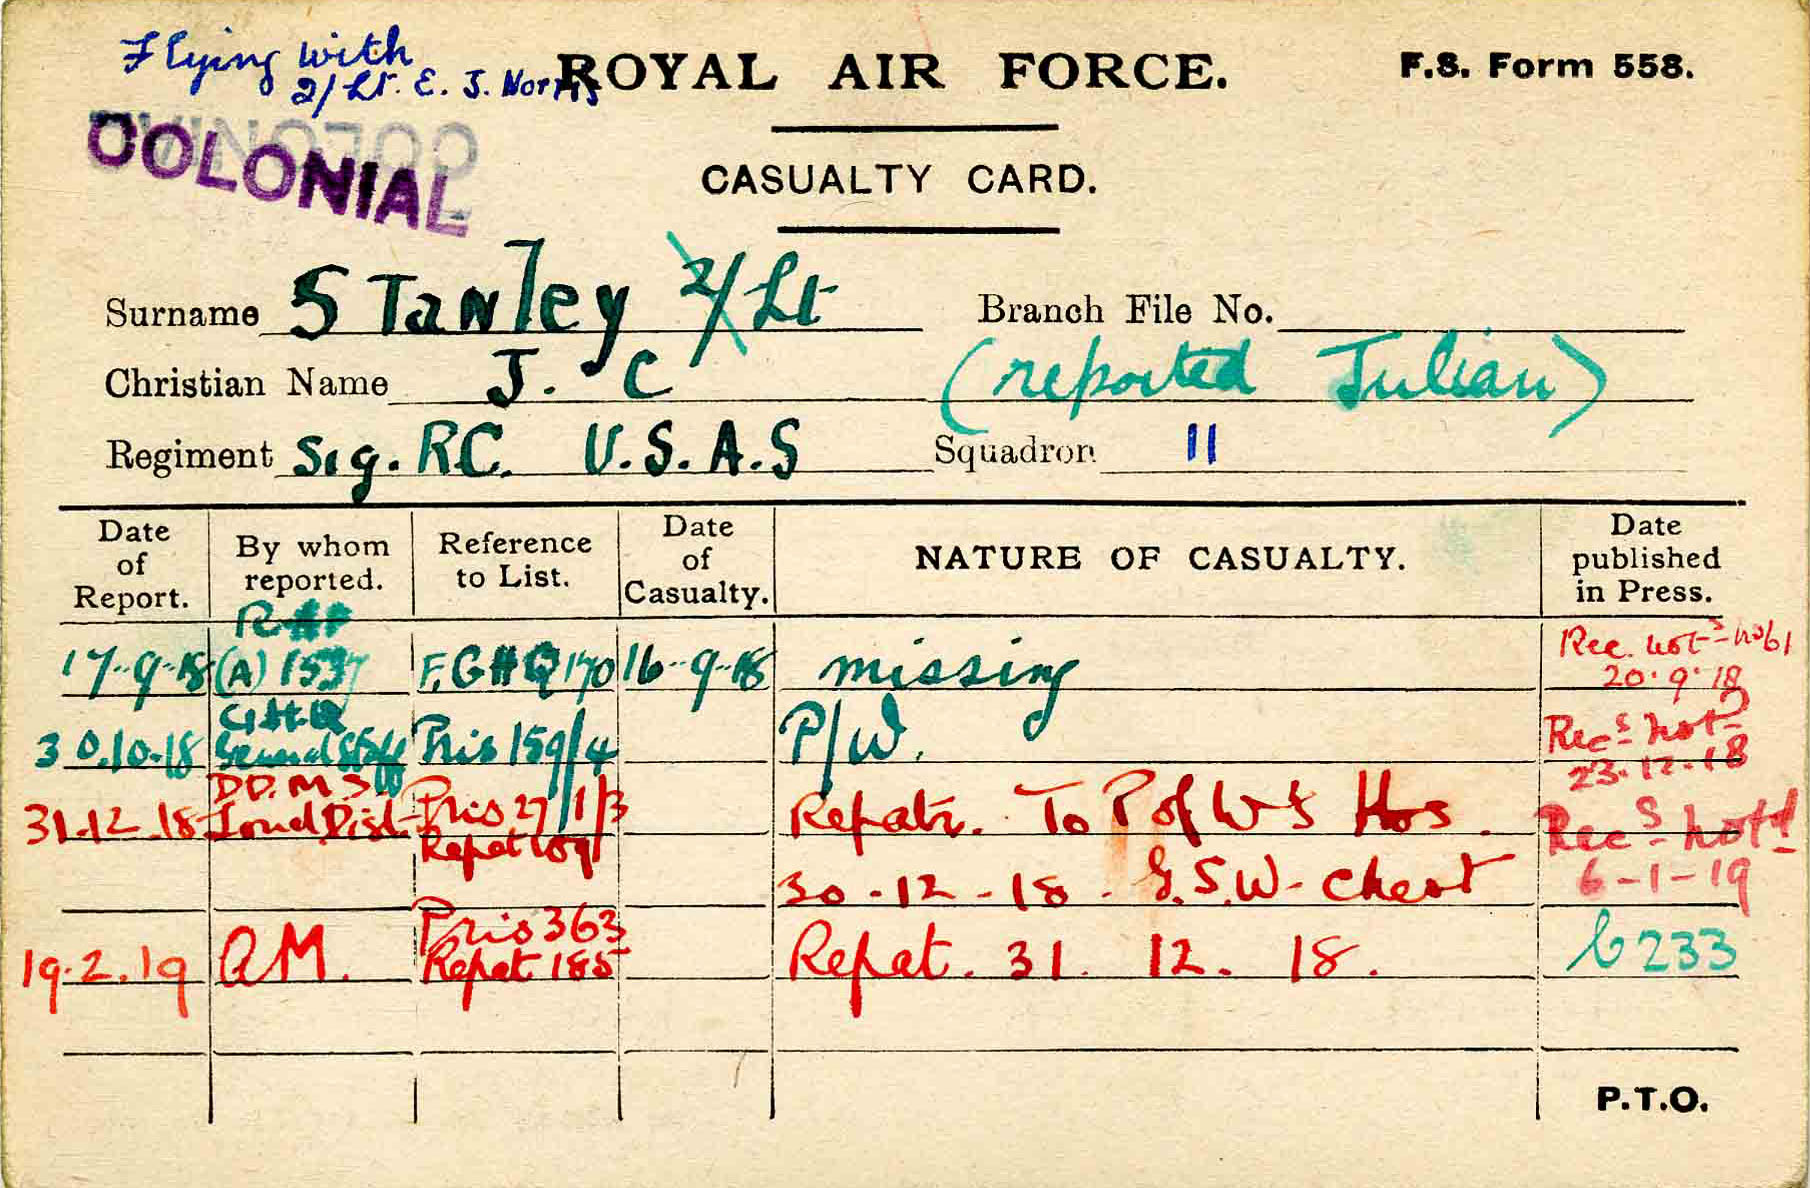 Flying with
2/Lt. E. J. Norris
ROYAL AIR FORCE.
F.S. Form 558.
COLONIAL
CASUALTY CARD.
Surname Stanley 2/Lt
Branch File No.
Christian Name J. C
(reported Julian)
Regiment Sig. RC. U.S.A.S
Squadron 11
Date of Report.
By whom reported.
Reference to List.
Date of Casualty.
NATURE OF CASUALTY.
Date published in Press.
17-9-18 (A) 1537 F.GHQ 170 16-9-18 missing Rec. not 20.9.18
30.10.18 GHQ General Staff Pris 159/4 P/W. Recs not 23.12.18
31.12.18 D.D.M.S. Lond Dist. Pris 27/1/3 Repatr. To P of W's Hos. Recs not
30-12-18. G.S.W. chest 6-1-19
19.2.19 AM. Pris 363 Repat 185 Repat. 31. 12. 18. 6233
P.T.O.